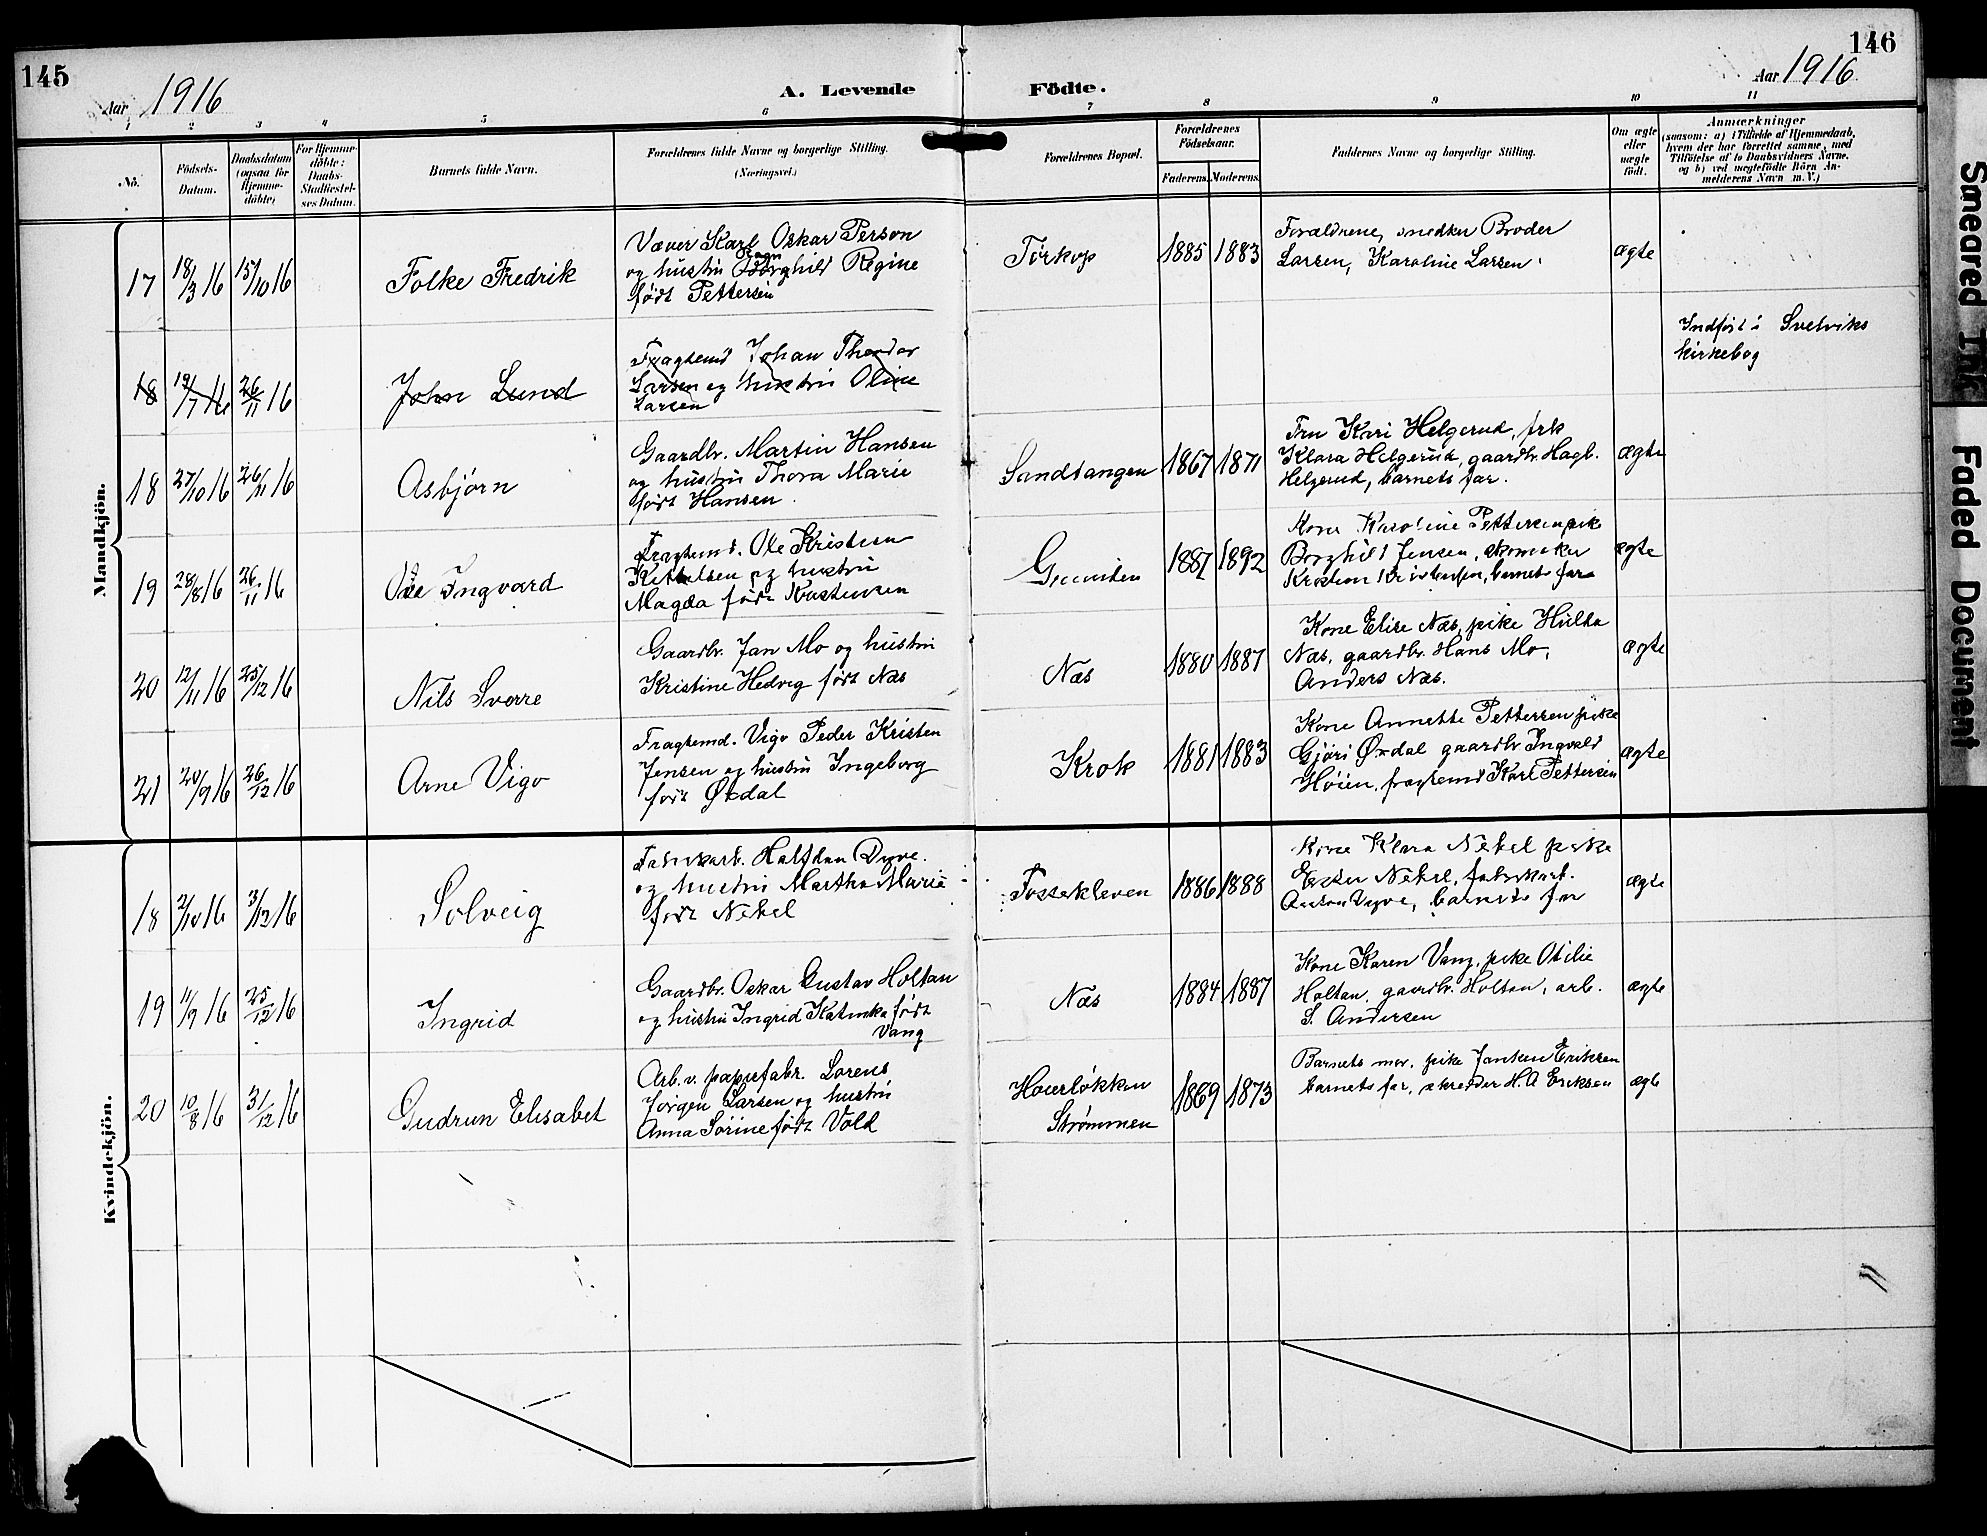 145
Aar 1916
A. Levende
Födte.
Aar 1916
146
1 2 3 4 5 6 7 8 9 10 11
No.
Födsels-
Datum.
Daabsdatum
(ogsaa for
Hjemme-
döbte)
For Hjemme-
döbte:
Daabs-
Stadfæstel-
ses Datum.
Barnets fulde Navn.
Forældrenes fulde Navne og borgerlige Stilling.
(Næringsvei.)
Forældrenes Bopæl.
Forældrenes
Födselsaar.
Faderens. Moderens.
Faddernes Navne og borgerlige Stilling.
Om ægte
eller
uægte
födt.
Anmærkninger
(saasom: a) i Tilfælde af Hjemmedaab,
hvem der har forrettet samme, med
Tilföielse af to Daabsvidners Navne,
og b) ved uægtefödte Börn An-
melderens Navn m. V.)
Mandkjön.
17
18/3 16
15/10 16
Folke Fredrik
Væver Karl Oskar Person
og hustru Borghild Regine
født Pettersen
Tørkop
1885
1883
Forældrene, snedker Broder
Larsen, Karoline Larsen
ægte
18
19/7 16
26/11 16
John Lund
Fragtemd Johan Theodor
Larsen og hustru Oline
Larsen
Indført i Svelviks
kirkebog
18
27/10 16
26/11 16
Asbjørn
Gaardbr. Martin Hansen
og hustru Thora Marie
født Hansen
Sandtangen
1867
1871
Fru Kari Helgerud, frk
Klara Helgerud, gaardbr. Hagb.
Helgerud, barnets far.
ægte
19
28/8 16
26/11 16
Ole Ingvard
Fragtemd. Ole Kristian
Kittelsen og hustru
Magda født Kristensen
1887
1892
Kone Karoline Pettersen, pik
Borghild Jensen, skomaker
Kristian Kristensen, barnets far
ægte
20
12/11 16
25/12 16
Nils Sverre
Gaardbr. Jan Mo og hustru
Kristine Hedvig født Næs
Næs
1880
1887
Kone Elise Næs, pike Hulda
Næs, gaardbr. Hans Mo,
Anders Næs.
ægte
21
20/9 16
26/12 16
Arne Vigo
Fragtemd. Vigo Peder Kristen
Jensen og hustru Ingeborg
født Økdal
Krok
1881
1883
Kone Annette Pettersen pike
Gjøri Økdal gaardbr Ingvald
Høien, fragtemd Karl Pettersen
ægte
Kvindekjön.
18
2/10 16
3/12 16
Solveig
Fabrikarb. Halfdan Dyve.
og hustru Martha Marie
født Nekel
Fossekleven
1886
1888
Kone Klara Nekel pike
Ester Nekel, fabrikarb.
Anton Dyve, barnets far
ægte
19
11/9 16
25/12 16
Ingrid
Gaardbr. Oskar Gustav Holtan
og hustru Ingrid Katinka født
Vang
Næs
1884
1887
Kone Karen Vang, pike Otilie
Holtan, gaardbr. Holtan, arb.
S. Andersen
ægte
20
10/8 16
31/12 16
Gudrun Elisabet
Arb. v. papirfabr. Lorens
Jørgen Larsen og hustru
Anna Sørine født Vold
Houerløkken
Strømmen
1869
1873
Barnets mor, pike Janken Eriksen
barnets far, skredder H. A Eriksen
ægte
Smeared Ink
Faded Document